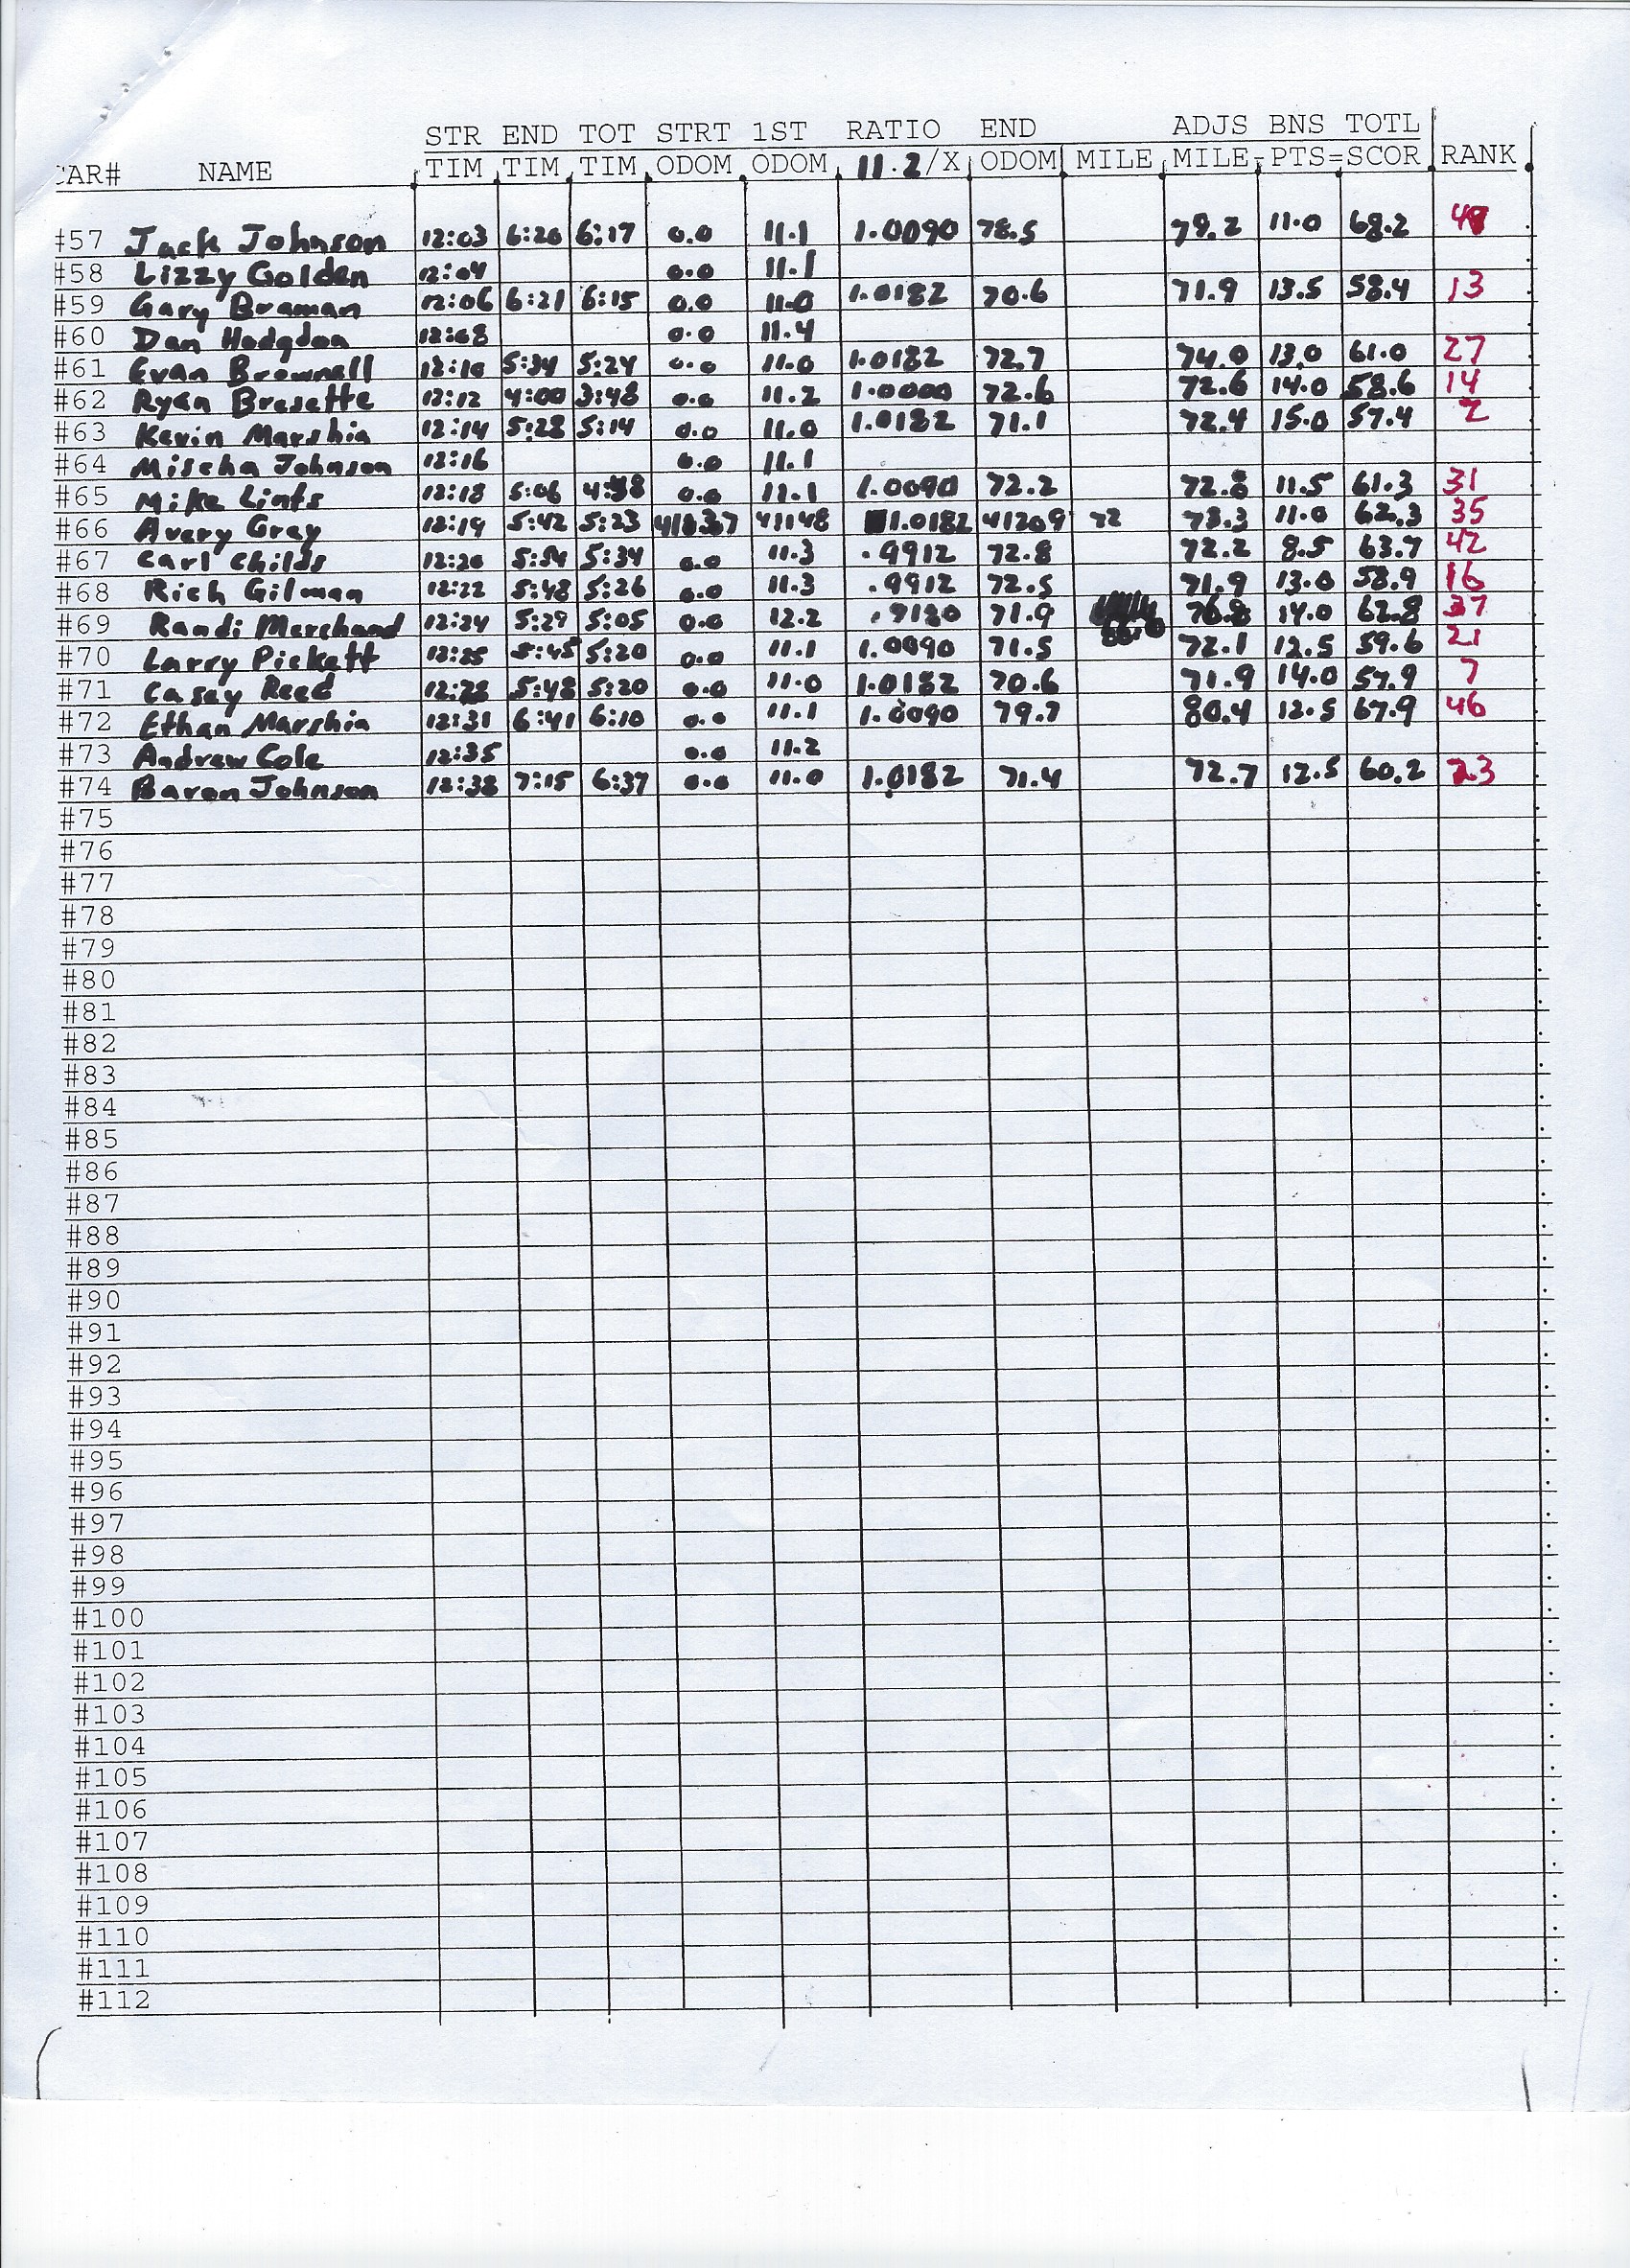 STR END TOT STRT 1ST RATIO END ADJS BNS TOTL
CAR# NAME TIM TIM TIM ODOM ODOM 11.2/X ODOM MILE MILE-PTS=SCOR RANK
#57 Jack Johnson 12:03 6:20 6:17 0.0 11.1 1.0090 78.5 79.2 11.0 68.2
#58 Lizzy Golden 12:04 0.0 11.1
#59 Gary Braman 12:06 6:21 6:15 0.0 11.0 1.0182 70.6 71.9 13.5 58.4 13
#60 Dan Hodgdon 12:08 0.0 11.4
#61 Evan Brownell 12:10 5:34 5:24 0.0 11.0 1.0182 72.7 74.0 13.0 61.0 27
#62 Ryan Bresette 12:12 4:00 3:48 0.0 11.2 1.0000 72.6 72.6 14.0 58.6 14
#63 Kevin Marshia 12:14 5:28 5:14 0.0 11.0 1.0182 71.1 72.4 15.0 57.4 2
#64 Mischa Johnson 12:16 0.0 11.1
#65 Mike Lints 12:18 5:06 4:48 0.0 11.1 1.0090 72.2 72.8 11.5 61.3 31
#66 Avery Grey 12:19 5:42 5:23 41137 41148 1.0182 41209 72 73.3 11.0 62.3 35
#67 Carl Childs 12:20 5:54 5:34 0.0 11.3 .9912 72.8 72.2 8.5 63.7 42
#68 Rich Gilman 12:22 5:48 5:26 0.0 11.3 .9912 72.5 71.9 13.0 58.9 16
#69 Randi Merchand 12:24 5:29 5:05 0.0 12.2 .9180 71.9 76.8 14.0 62.8 37
#70 Larry Pickett 12:25 5:45 5:20 0.0 11.1 1.0090 71.5 72.1 12.5 59.6 21
#71 Casey Reed 12:28 5:48 5:20 0.0 11.0 1.0182 70.6 71.9 14.0 57.9 7
#72 Ethan Marshia 12:31 6:41 6:10 0.0 11.1 1.0090 79.7 80.4 12.5 67.9 46
#73 Andrew Cole 12:35 0.0 11.2
#74 Baron Johnson 12:38 7:15 6:37 0.0 11.0 1.0182 71.4 72.7 12.5 60.2 23
#75
#76
#77
#78
#79
#80
#81
#82
#83
#84
#85
#86
#87
#88
#89
#90
#91
#92
#93
#94
#95
#96
#97
#98
#99
#100
#101
#102
#103
#104
#105
#106
#107
#108
#109
#110
#111
#112